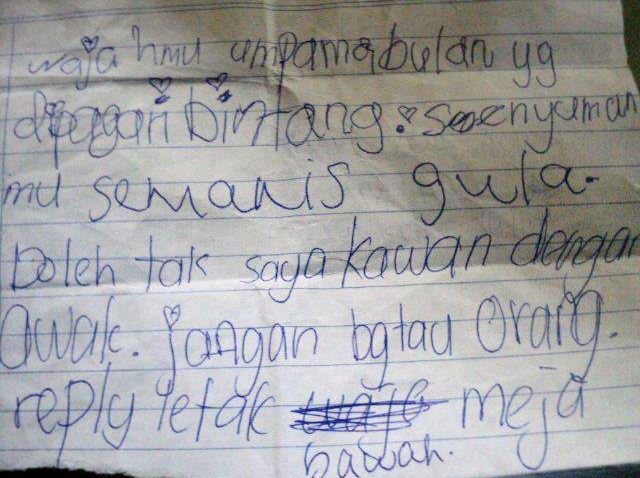 wajahmu umpama bulan yg
dipagari bintang. senyuman
mu semanis gula.
Boleh tak saya kawan dengan
awak. jangan bgtau orang.
reply letak meja
bawah.